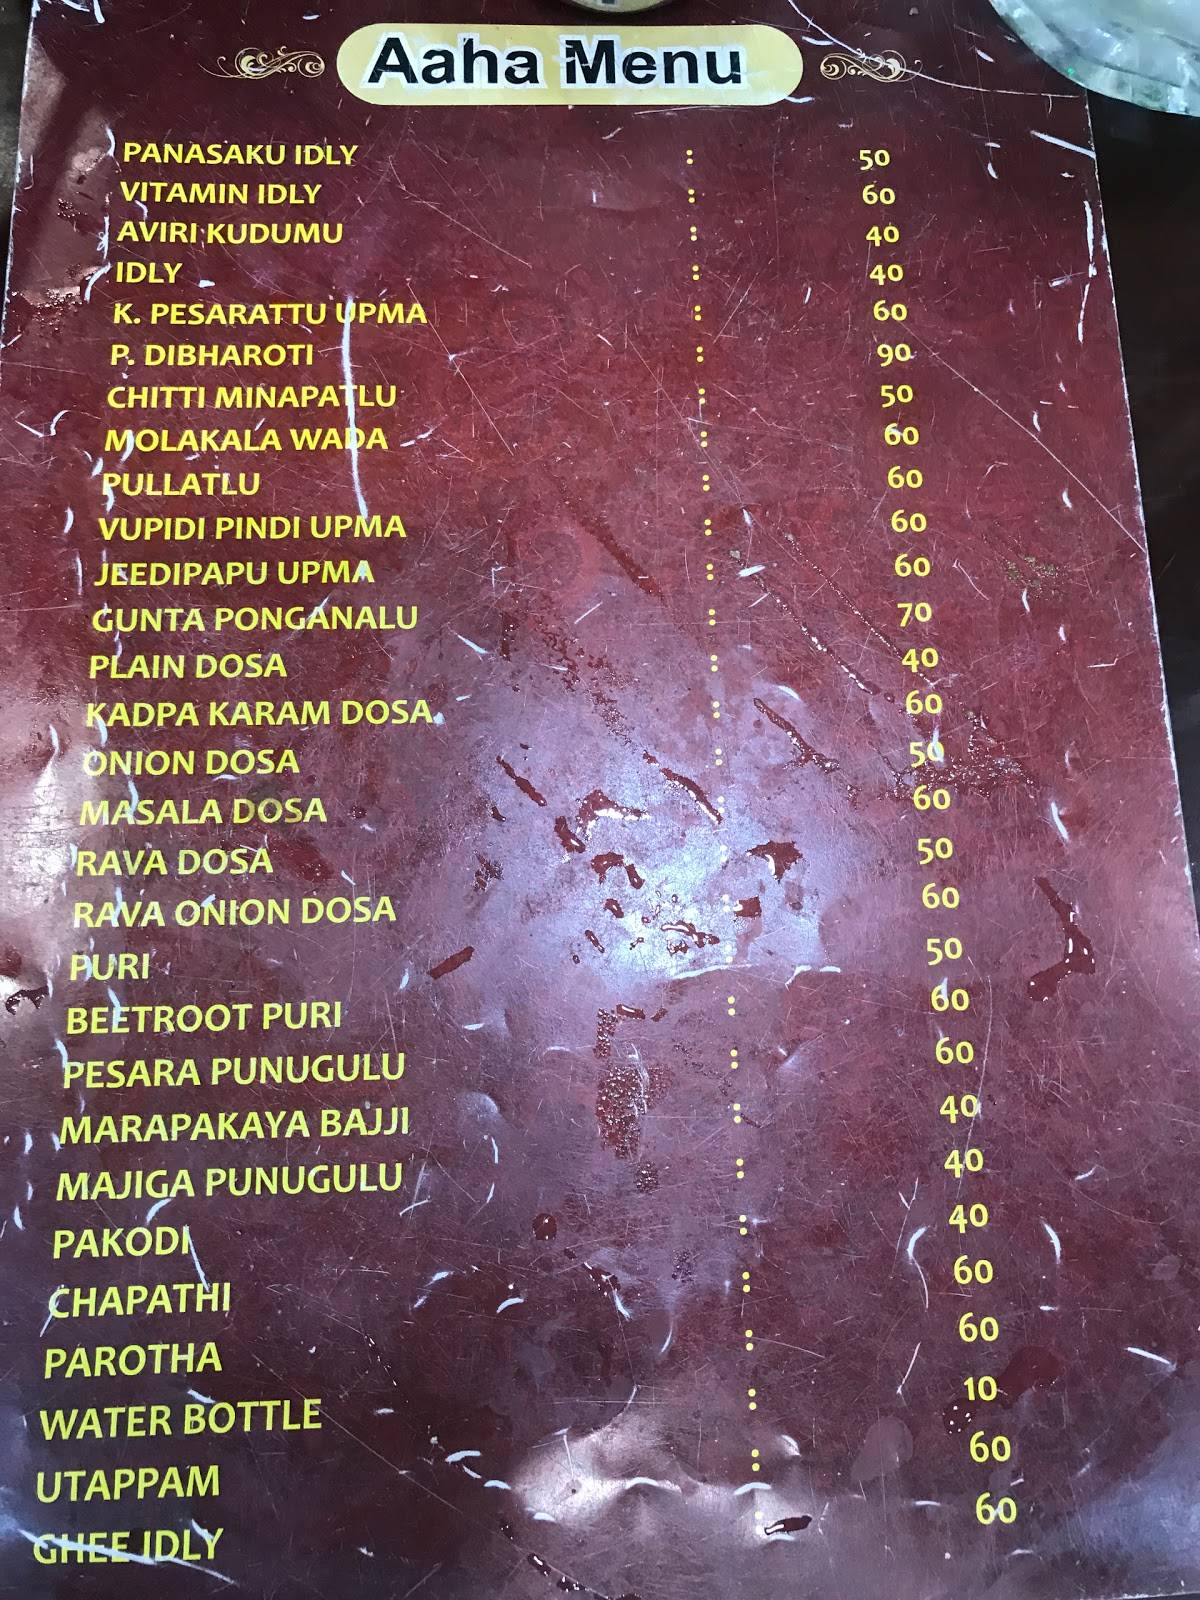 Aaha Menu
PANASAKU IDLY : 50
VITAMIN IDLY : 60
AVIRI KUDUMU : 40
IDLY : 40
K. PESARATTU UPMA : 60
P. DIBHAROTI : 90
CHITTI MINAPATLU : 50
MOLAKALA WADA : 60
PULLATLU : 60
VUPIDI PINDI UPMA : 60
JEEDIPAPU UPMA : 60
GUNTA PONGANALU : 70
PLAIN DOSA : 40
KADPA KARAM DOSA : 60
ONION DOSA : 50
MASALA DOSA : 60
RAVA DOSA : 50
RAVA ONION DOSA : 60
PURI : 50
BEETROOT PURI : 60
PESARA PUNUGULU : 60
MARAPAKAYA BAJJI : 40
MAJIGA PUNUGULU : 40
PAKODI : 40
CHAPATHI : 60
PAROTHA : 60
WATER BOTTLE : 10
UTAPPAM : 60
GHEE IDLY : 60